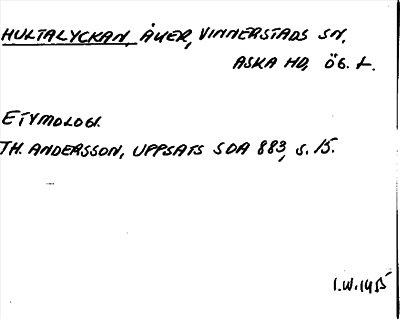 HULTALYCKAN, ÅKER, VINNERSTADS SN,
ASKA HD, ÖG. L.
ETYMOLOGI.
TH. ANDERSSON, UPPSATS SOA 883, S. 15.